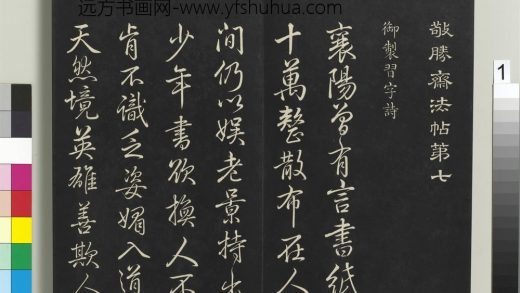 远方书画网-www.yfshuhua.com
敬勝齋法帖第七
御製習字詩
襄陽曾有言書紙
十萬整散布在人
間仍以娱老景持出
少年書欲換人不
肯不識乏姿媚入道
天然境英雄善欺人
1